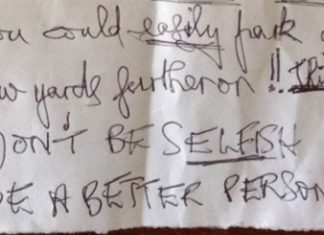 ou could easily park a
w yards further on!!
DON'T BE SELFISH
BE A BETTER PERSON